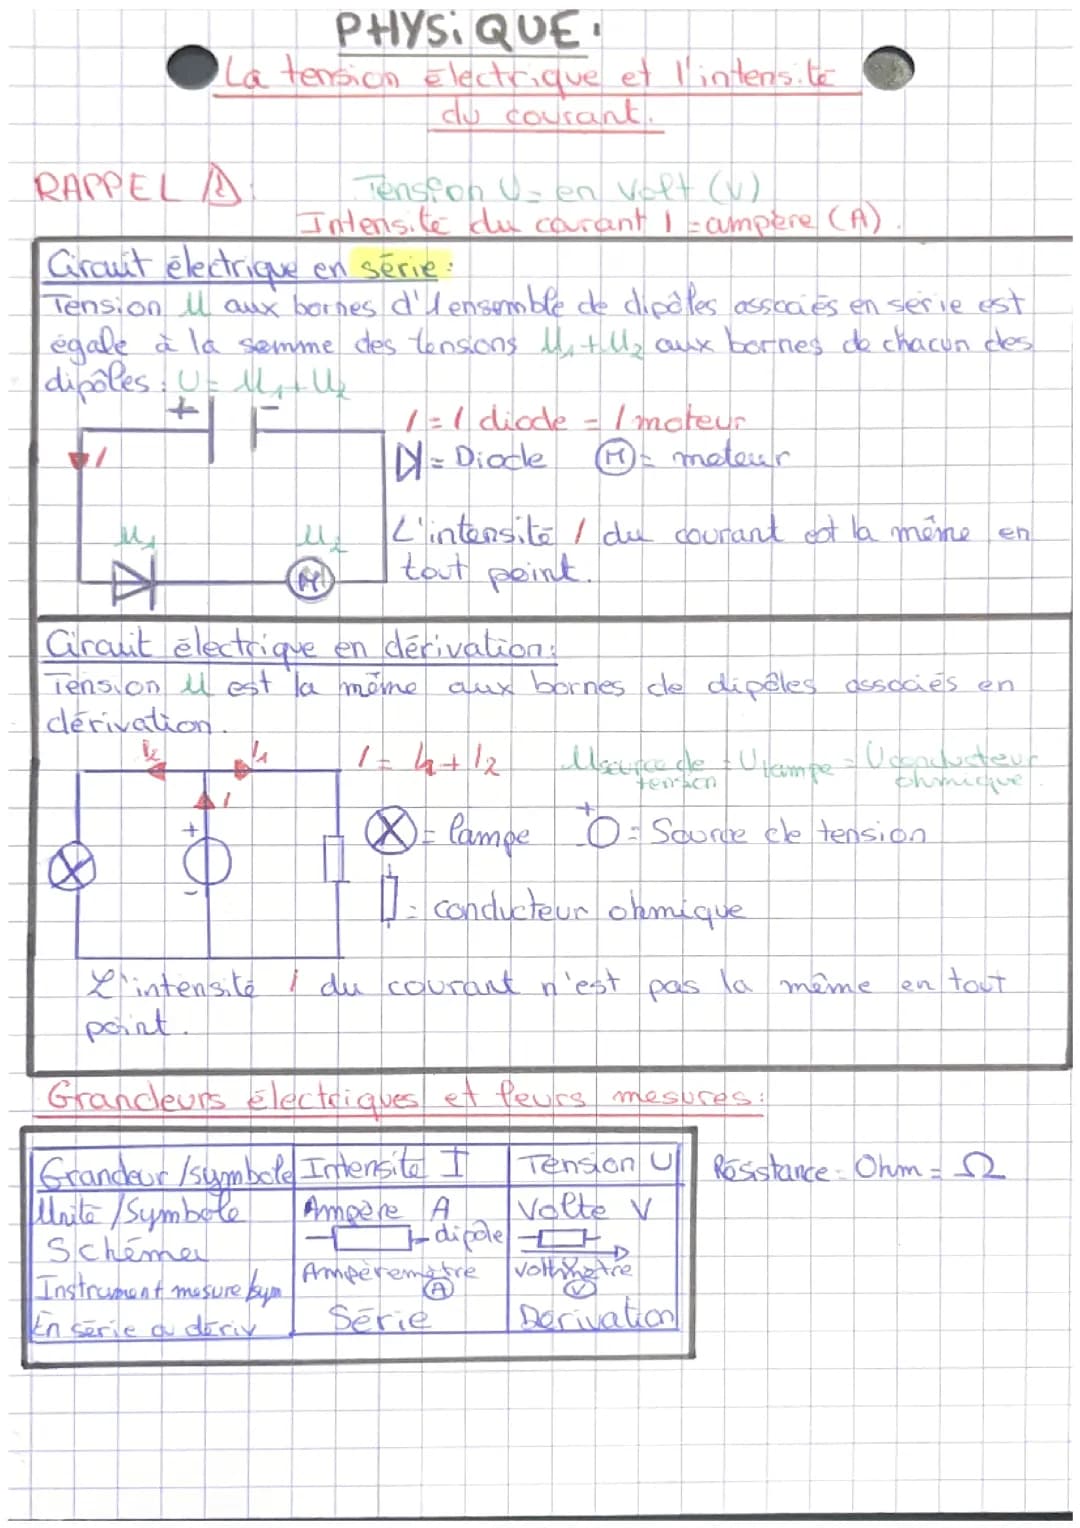 PHYSIQUE.
La tension électrique et l'intensité
du courant.
RAPPEL ⚠ Tension U = en Volt (V)
Intensité du courant I = ampère (A).
Circuit électrique en série :
Tension U aux bornes d'l'ensemble de dipôles associés en série est
égale à la somme des tensions U1 + U2 aux bornes de chacun des
dipôles : U = U1 + U2
+ - I = I diode = I moteur
I = Diode M = moteur
U1 U2 L'intensité I du courant est la même en
M tout point.
Circuit électrique en dérivation :
Tension U est la même aux bornes de dipôles associés en
dérivation.
I2 I1 I = I1 + I2 U source de tension = U lampe = U conducteur ohmique.
I
+ = lampe + - = Source de tension
-
= conducteur ohmique
L'intensité I du courant n'est pas la même en tout
point.
Grandeurs électriques et leurs mesures :
Grandeur /symbole Intensité I Tension U Résistance = Ohm = Ω
Unité /Symbole Ampère A Volte V
Schéma dipôle
Instrument mesure/sym Ampèremètre A Voltmètre V
En série ou dériv Série Dérivation